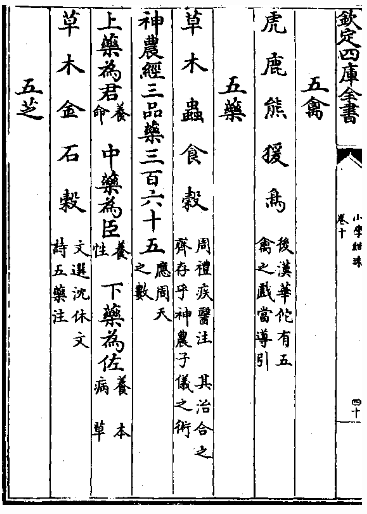 欽定四庫全書
小學紺珠
卷十
四十
五禽
虎鹿熊猨鳥
後漢華佗有五
禽之戲當導引
五藥
草木蟲食穀
周禮疾醫注 其治合之
齊存乎神農子儀之術
神農經三品藥三百六十五
應周天
之數
上藥為君
養
命
中藥為臣
養
性
下藥為佐
養 本
病 草
草木金石穀
文選沈休文
詩五藥注
五芝